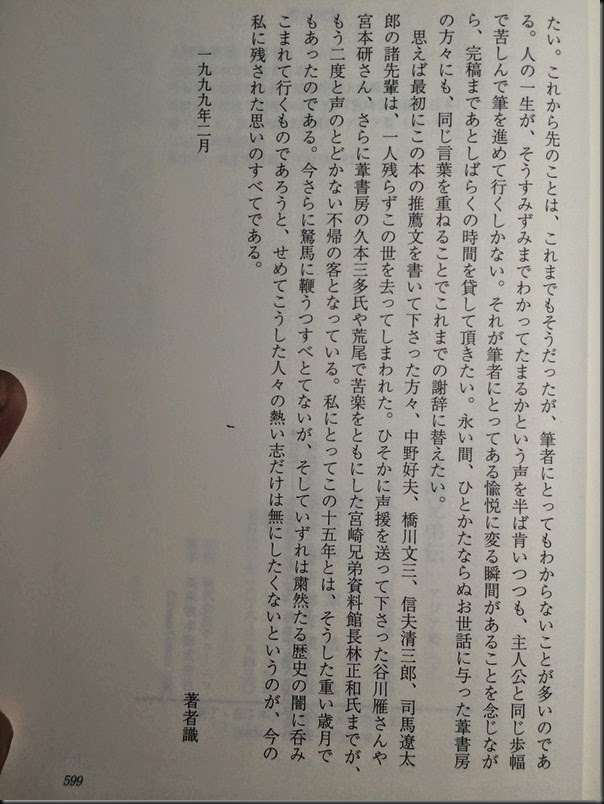 たい。これから先のことは、これまでもそうだったが、筆者にとってもわからないことが多いのであ
る。人の一生が、そうすみずみまでわかってたまるかという声を半ば肯いつつも、主人公と同じ歩幅
で苦しんで筆を進めて行くしかない。それが筆者にとってある愉悦に変る瞬間があることを念じなが
ら、完稿まであとしばらくの時間を貸して頂きたい。永い間、ひとかたならぬお世話に与った葦書房
の方々にも、同じ言葉を重ねることでこれまでの謝辞に替えたい。
思えば最初にこの本の推薦文を書いて下さった方々、中野好夫、橋川文三、信夫清三郎、司馬遼太
郎の諸先輩は、一人残らずこの世を去ってしまわれた。ひそかに声援を送って下さった谷川雁さんや
宮本研さん、さらに葦書房の久本三多氏や荒尾で苦楽をともにした宮崎兄弟資料館長林正和氏までが、
もう二度と声のとどかない不帰の客となっている。私にとってこの十五年とは、そうした重い歳月で
もあったのである。今さらに駑馬に鞭うつすべとてないが、そしていずれは粛然たる歴史の闇に呑み
こまれて行くものであろうと、せめてこうした人々の熱い志だけは無にしたくないというのが、今の
私に残された思いのすべてである。
一九九九年二月
著者識
599